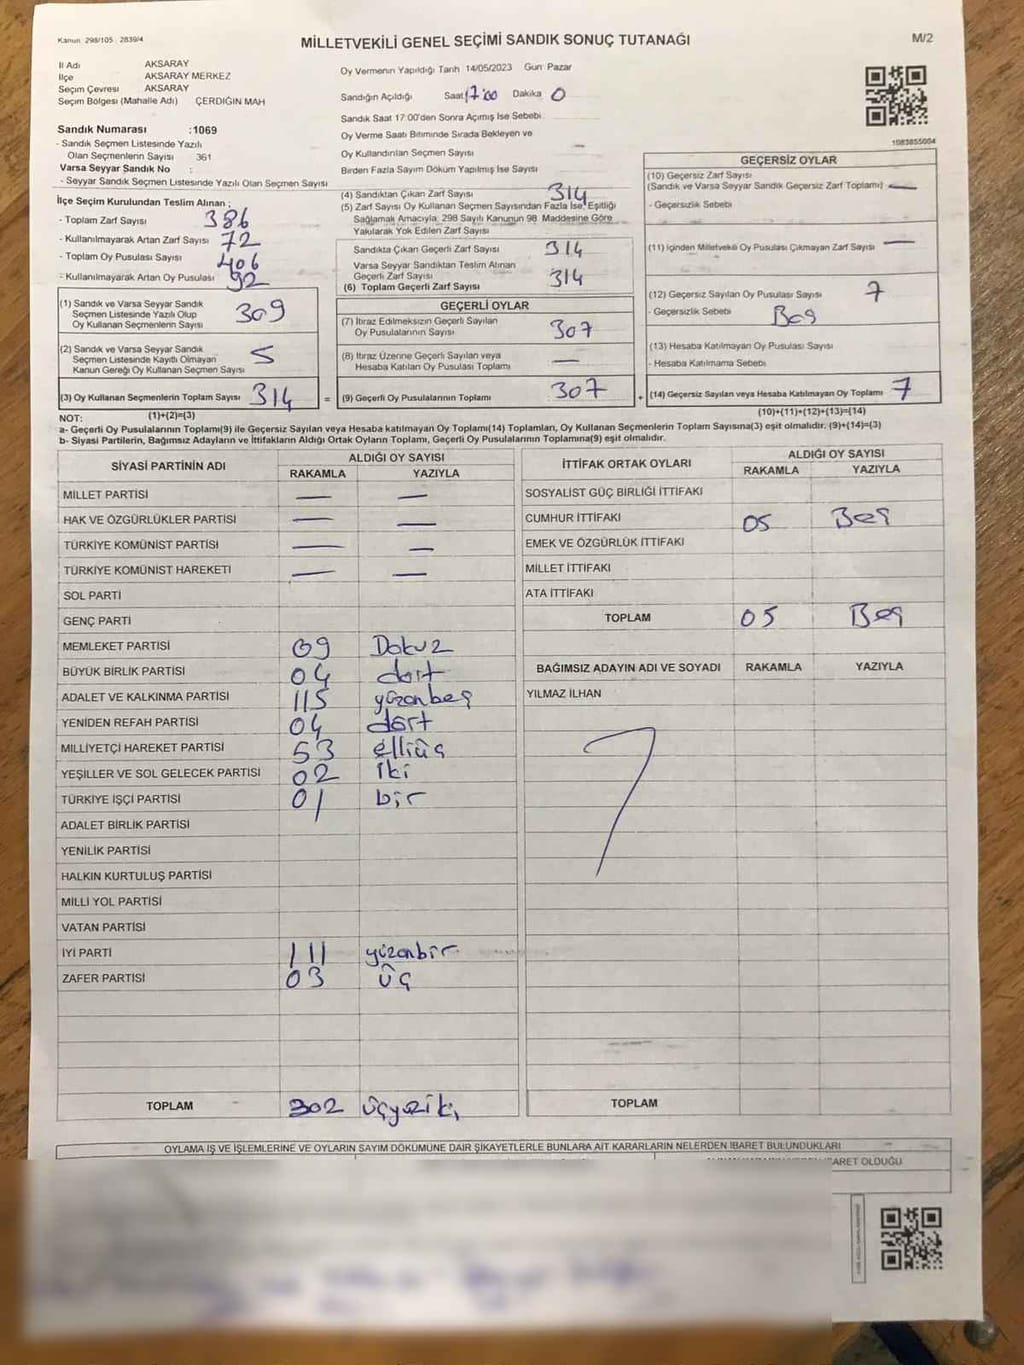 Kanun 298/105 2839/4
MİLLETVEKİLİ GENEL SEÇİMİ SANDIK SONUÇ TUTANAĞI
M/2
İl Adı AKSARAY
İlçe AKSARAY MERKEZ
Seçim Çevresi AKSARAY
Seçim Bölgesi (Mahalle Adı) ÇERDİĞİN MAH
Sandık Numarası :1069
- Sandık Seçmen Listesinde Yazılı
Olan Seçmenlerin Sayısı 361
Varsa Seyyar Sandık No :
- Seyyar Sandık Seçmen Listesinde Yazılı Olan Seçmen Sayısı
Oy Vermenin Yapıldığı Tarih 14/05/2023 Gün Pazar
Sandığın Açıldığı Saat 17:00 Dakika 0
Sandık Saat 17:00'den Sonra Açımış İse Sebebi
Oy Verme Saati Bitiminde Sırada Bekleyen ve
Oy Kullandırılan Seçmen Sayısı
Birden Fazla Sayım Döküm Yapılmış İse Sayısı
1083855004
İlçe Seçim Kurulundan Teslim Alınan ;
- Toplam Zarf Sayısı 386
- Kullanılmayarak Artan Zarf Sayısı 72
- Toplam Oy Pusulası Sayısı 406
- Kullanılmayarak Artan Oy Pusulası 92
(1) Sandık ve Varsa Seyyar Sandık
Seçmen Listesinde Yazılı Olup
Oy Kullanan Seçmenlerin Sayısı 309
(2) Sandık ve Varsa Seyyar Sandık
Seçmen Listesinde Kayıtlı Olmayan
Kanun Gereği Oy Kullanan Seçmen Sayısı 5
(3) Oy Kullanan Seçmenlerin Toplam Sayısı 314 =
(4) Sandıktan Çıkan Zarf Sayısı 314
(5) Zarf Sayısı Oy Kullanan Seçmen Sayısından Fazla İse, Eşitliği
Sağlamak Amacıyla; 298 Sayılı Kanunun 98. Maddesine Göre
Yakılarak Yok Edilen Zarf Sayısı
Sandıkta Çıkan Geçerli Zarf Sayısı 314
Varsa Seyyar Sandıktan Teslim Alınan
Geçerli Zarf Sayısı
(6) Toplam Geçerli Zarf Sayısı 314
GEÇERLİ OYLAR
(7) İtiraz Edilmeksizin Geçerli Sayılan
Oy Pusulalarının Sayısı 307
(8) İtiraz Üzerine Geçerli Sayılan veya
Hesaba Katılan Oy Pusulası Toplamı —
(9) Geçerli Oy Pusulalarının Toplamı 307 +
GEÇERSİZ OYLAR
(10) Geçersiz Zarf Sayısı
(Sandık ve Varsa Seyyar Sandık Geçersiz Zarf Toplamı) —
- Geçersizlik Sebebi
(11) İçinden Milletvekili Oy Pusulası Çıkmayan Zarf Sayısı —
(12) Geçersiz Sayılan Oy Pusulası Sayısı 7
- Geçersizlik Sebebi Boş
(13) Hesaba Katılmayan Oy Pusulası Sayısı
- Hesaba Katılmama Sebebi
(14) Geçersiz Sayılan veya Hesaba Katılmayan Oy Toplamı 7
NOT: (1)+(2)=(3) (10)+(11)+(12)+(13)=(14)
a- Geçerli Oy Pusulalarının Toplamı(9) ile Geçersiz Sayılan veya Hesaba katılmayan Oy Toplamı(14) Toplamları, Oy Kullanan Seçmenlerin Toplam Sayısına(3) eşit olmalıdır. (9)+(14)=(3)
b- Siyasi Partilerin, Bağımsız Adayların ve İttifakların Aldığı Ortak Oyların Toplamı, Geçerli Oy Pusulalarının Toplamına(9) eşit olmalıdır.
SİYASİ PARTİNİN ADI ALDIĞI OY SAYISI
RAKAMLA YAZIYLA
MİLLET PARTİSİ — —
HAK VE ÖZGÜRLÜKLER PARTİSİ — —
TÜRKİYE KOMÜNİST PARTİSİ — —
TÜRKİYE KOMÜNİST HAREKETİ — —
SOL PARTİ
GENÇ PARTİ
MEMLEKET PARTİSİ 09 Dokuz
BÜYÜK BİRLİK PARTİSİ 04 dört
ADALET VE KALKINMA PARTİSİ 115 yüzonbeş
YENİDEN REFAH PARTİSİ 04 dört
MİLLİYETÇİ HAREKET PARTİSİ 53 elliüç
YEŞİLLER VE SOL GELECEK PARTİSİ 02 İki
TÜRKİYE İŞÇİ PARTİSİ 01 bir
ADALET BİRLİK PARTİSİ
YENİLİK PARTİSİ
HALKIN KURTULUŞ PARTİSİ
MİLLİ YOL PARTİSİ
VATAN PARTİSİ
İYİ PARTİ 111 yüzonbir
ZAFER PARTİSİ 03 üç
TOPLAM 302 üçyüziki
İTTİFAK ORTAK OYLARI ALDIĞI OY SAYISI
RAKAMLA YAZIYLA
SOSYALİST GÜÇ BİRLİĞİ İTTİFAKI
CUMHUR İTTİFAKI 05 Beş
EMEK VE ÖZGÜRLÜK İTTİFAKI
MİLLET İTTİFAKI
ATA İTTİFAKI
TOPLAM 05 Beş
BAĞIMSIZ ADAYIN ADI VE SOYADI RAKAMLA YAZIYLA
YILMAZ İLHAN
TOPLAM
OYLAMA İŞ VE İŞLEMLERİNE VE OYLARIN SAYIM DÖKÜMÜNE DAİR ŞİKAYETLERLE BUNLARA AİT KARARLARIN NELERDEN İBARET BULUNDUKLARI
ARET OLDUĞU